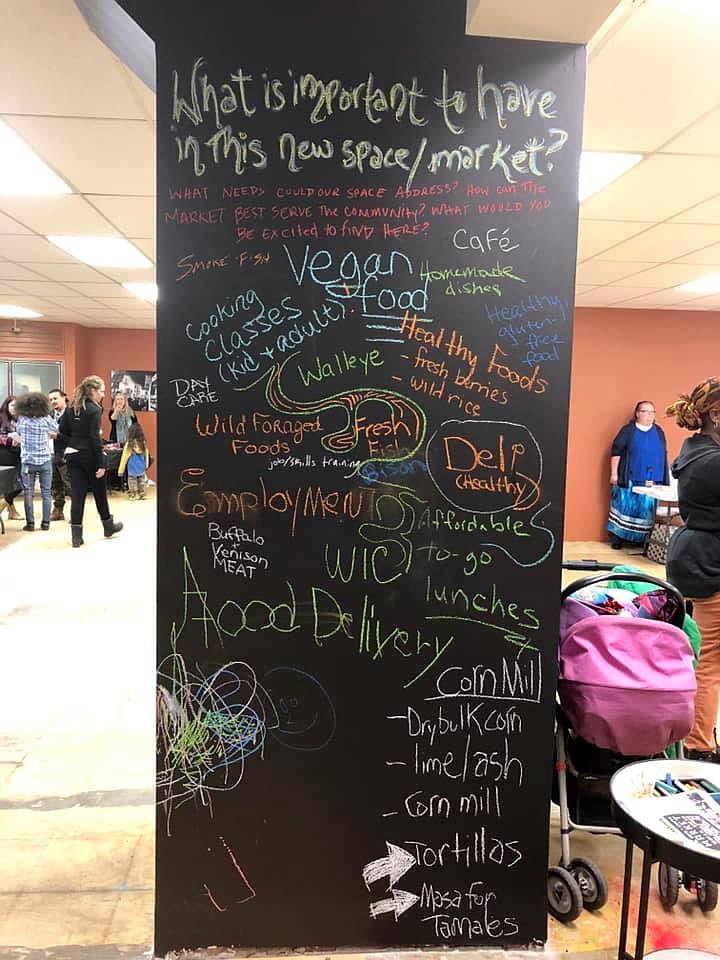 What is important to have
in this new space/market?
WHAT NEEDS COULD OUR SPACE ADDRESS? HOW CAN THE
MARKET BEST SERVE THE COMMUNITY? WHAT WOULD YOU
BE EXCITED to FIND HERE?
CaFé
SMOKE FISH
Vegan
food
Homemade
dishes
Healthy,
gluten-
free
food
Cooking
Classes
(kid + adult)!
Healthy Foods
- fresh berries
- wild rice
Walleye
DAY
CARE
Wild Foraged
Foods
Fresh
Fish
job/skills training
Bison
Deli
(Healthy)
EmployMENT
Buffalo
+
Venison
MEAT
WIC
Affordable
to-go
lunches
Food Delivery
Corn Mill
- Dry bulk corn
- lime/ash
- Corn mill
Tortillas
Masa for
Tamales